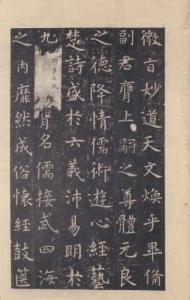 微旨妙道天文煥乎畢備
副君膺上嗣之尊體元良
之德降情儒術遊心經藝
楚詩盛於六義沛易明於
九膺名儒接武四海
之內靡然成俗懷經鼓篋